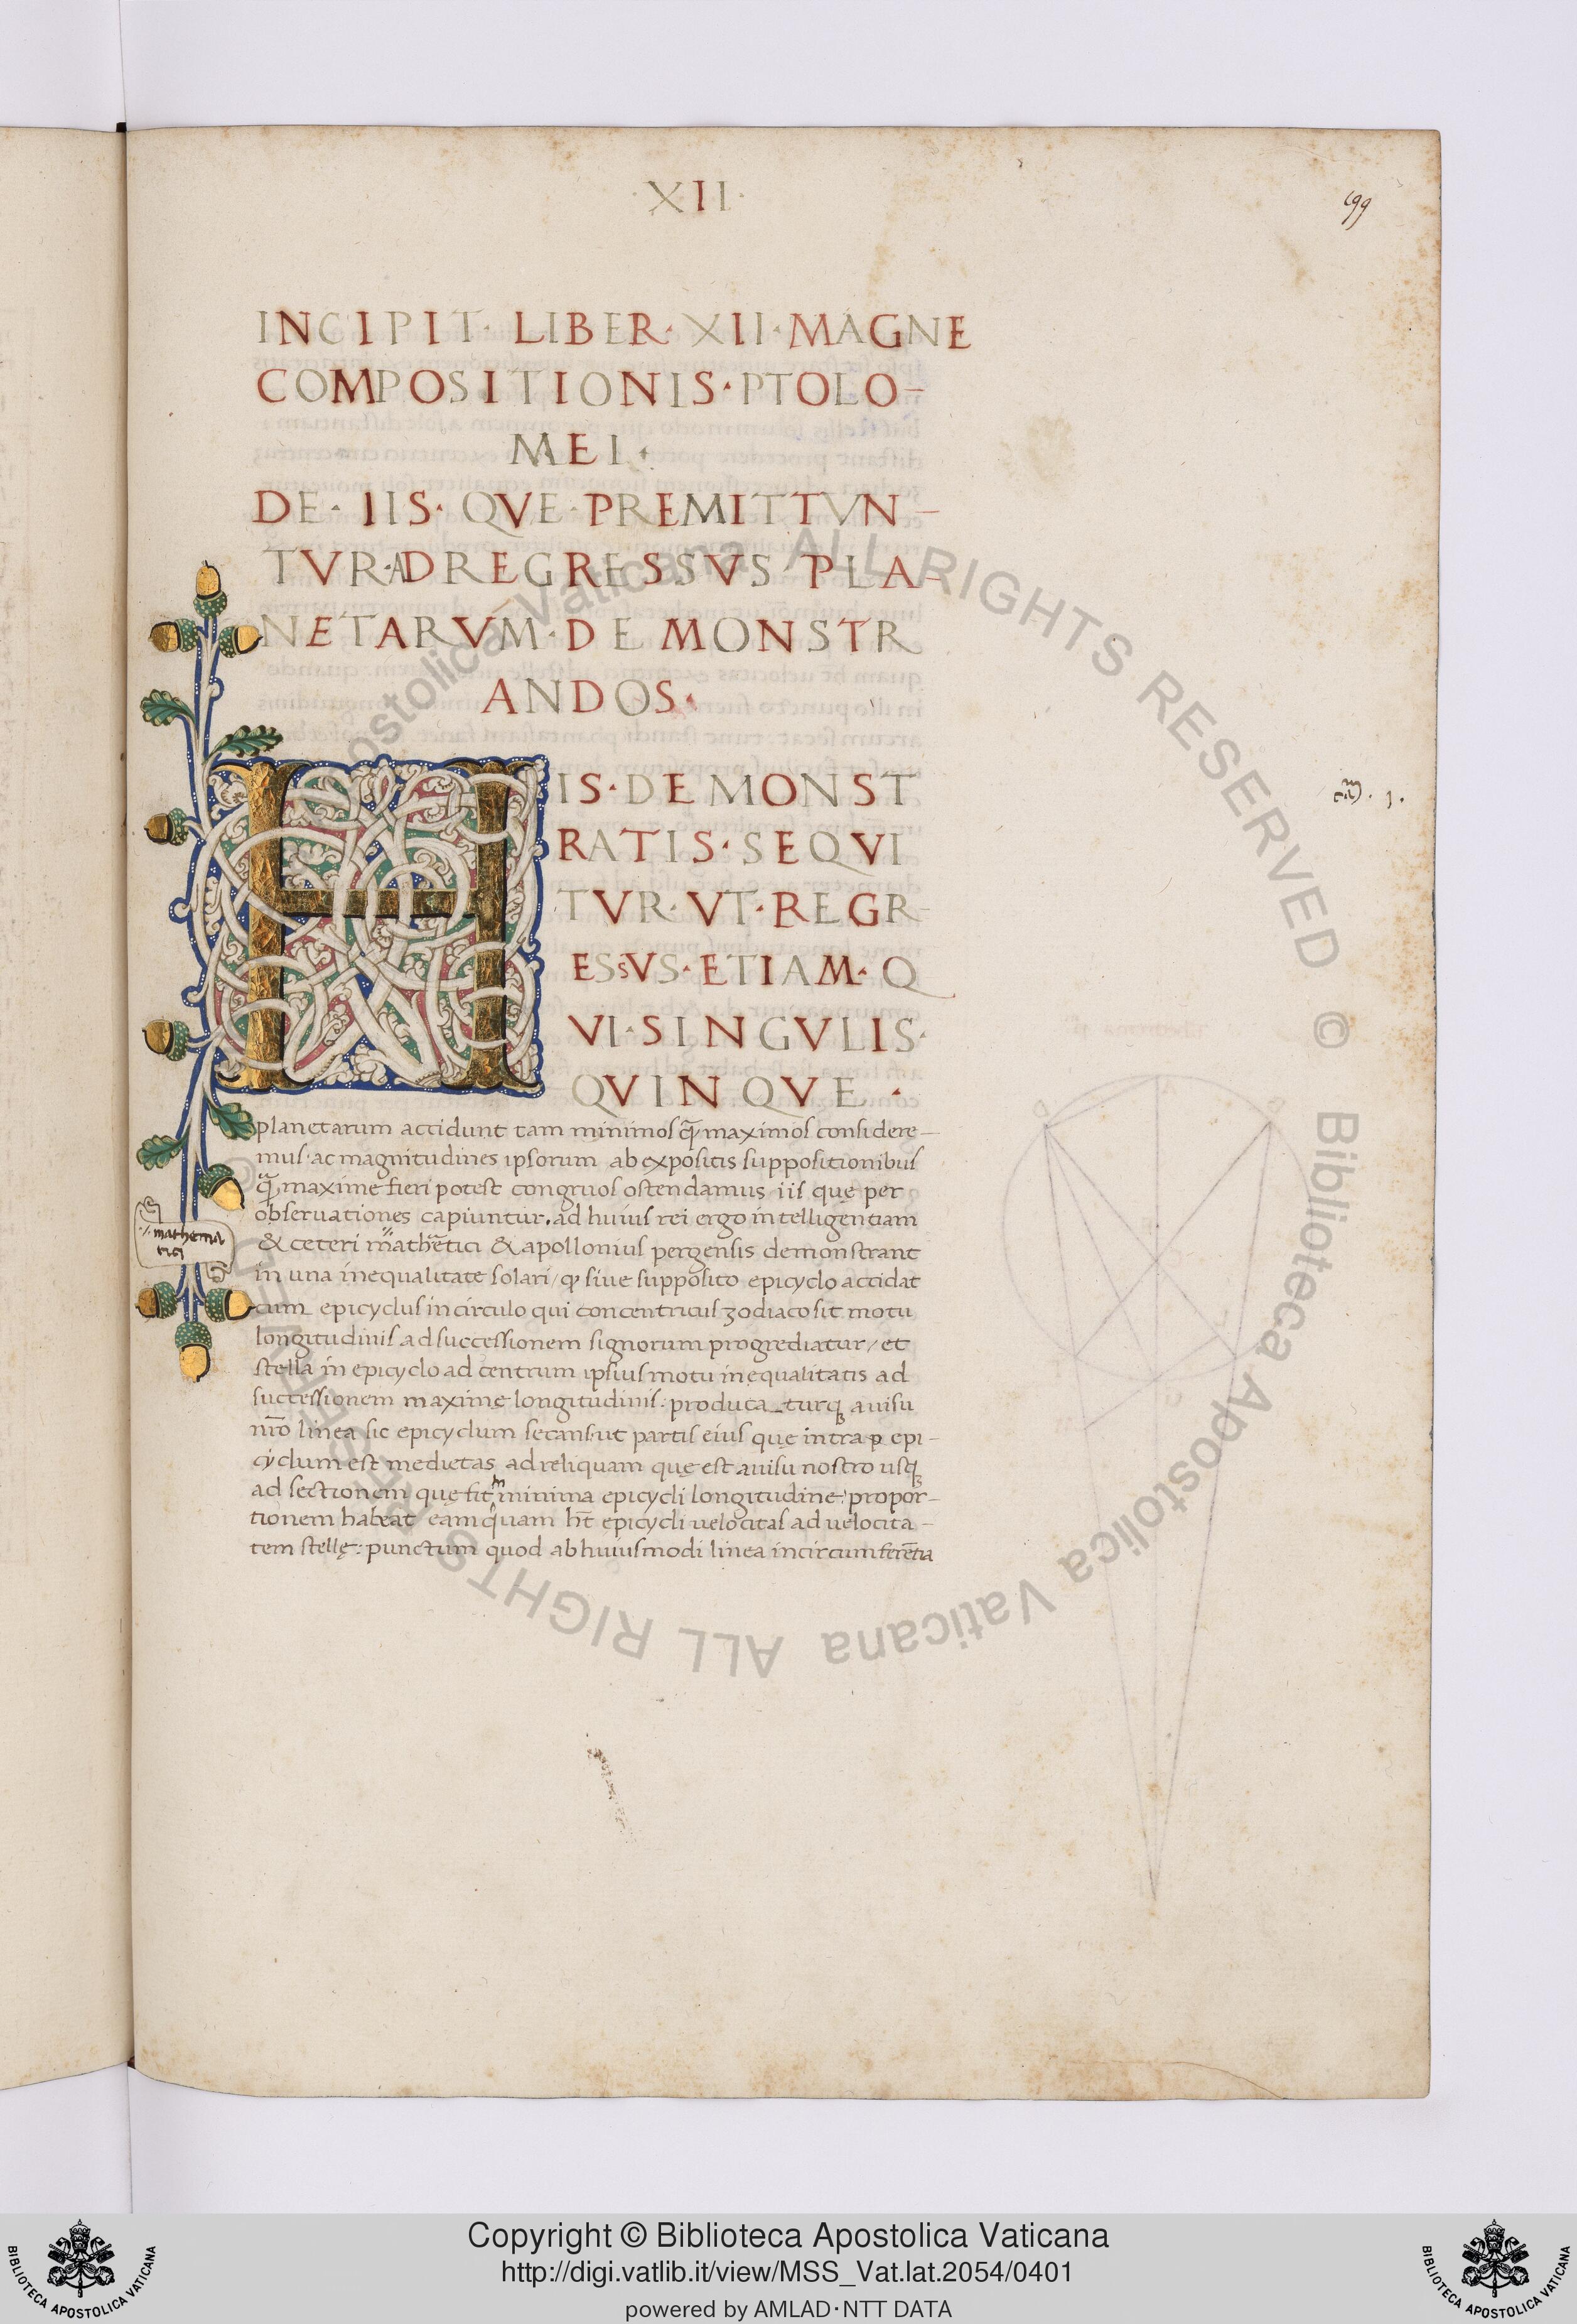 ·XII·
199
INCIPIT· LIBER· XII· MAGNE
COMPOSITIONIS· PTOLO-
MEI·
DE· IIS· QVE· PREMITTVN-
TVR·AD REGRESSVS· PLA-
NETARVM· DEMONSTR
ANDOS·
HIS· DEMONST
RATIS· SEQVI
TVR· VT· REGR-
ESSVS· ETIAM· Q
VI· SINGVLIS·
QVINQVE·
planetarum accidunt tam minimos q̃ maximos considere-
mus· ac magnitudines ipsorum ab expositis suppositionibus
q̃ maxime fieri potest congruos ostendamus iis quę per
observationes capiuntur. ad huius rei ergo intelligentiam
& ceteri mathẽtici & apollonius pergensis demonstrant
mathema
tici
in una inequalitate solari / ꝙ sive supposito epicyclo accidat
cum epicyclus in circulo qui concentricus zodiaco sit motu
longitudinis ad successionem signorum progrediatur / et
stella in epicyclo ad centrum ipsius motu inequalitatis ad
successionem maximę longitudinis: producaturq avisu
nr̃o linea sic epicyclum secans: ut partis eius quę intra epi-
cyclum est medietas ad reliquam quę est avisu nostro usq
ad sectionem quę fit minima epicycli longitudine: propor-
tionem habeat eam quam hr̃t epicycli velocitas ad velocita-
tem stellę: punctum quod ab huiusmodi linea in circumferẽtia
Copyright © Biblioteca Apostolica Vaticana
http://digi.vatlib.it/view/MSS_Vat.lat.2054/0401
powered by AMLAD·NTT DATA
BIBLIOTECA APOSTOLICA VATICANA
BIBLIOTECA APOSTOLICA VATICANA
© Biblioteca Apostolica Vaticana ALL RIGHTS RESERVED © Biblioteca Apostolica Vaticana ALL RIGHTS RESERVED